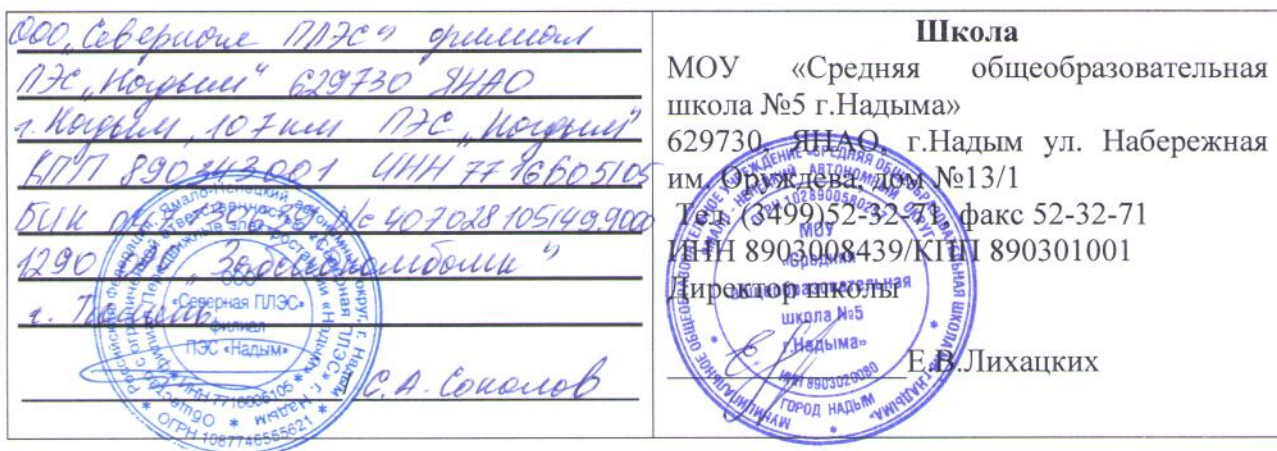 ООО „Северная ПЛЭС" филиал
ПЭС „Надым" 629730 ЯНАО
г. Надым, 107 км ПЭС „Надым"
КПП 890343001 ИНН 7716605105
БИК р/с 4070281051499000
1290
г. Тюмень
С.А. Соколов
ООО
«Северная ПЛЭС»
филиал
ПЭС «Надым»
ОГРН 1087746555621
Школа
МОУ «Средняя общеобразовательная
школа №5 г.Надыма»
629730, ЯНАО, г.Надым ул. Набережная
им. Оруждева, дом №13/1
Тел. (3499)52-32-71, факс 52-32-71
ИНН 8903008439/КПП 890301001
Директор школы
Е.В.Лихацких
МОУ
«Средняя
общеобразовательная
школа №5
г.Надыма»
ИНН 8903020080
ГОРОД НАДЫМ